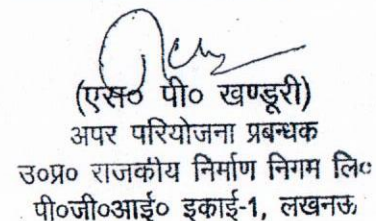 (एस० पी० खण्डूरी)
अपर परियोजना प्रबन्धक
उ०प्र० राजकीय निर्माण निगम लि०
पी०जी०आई० इकाई-1, लखनऊ